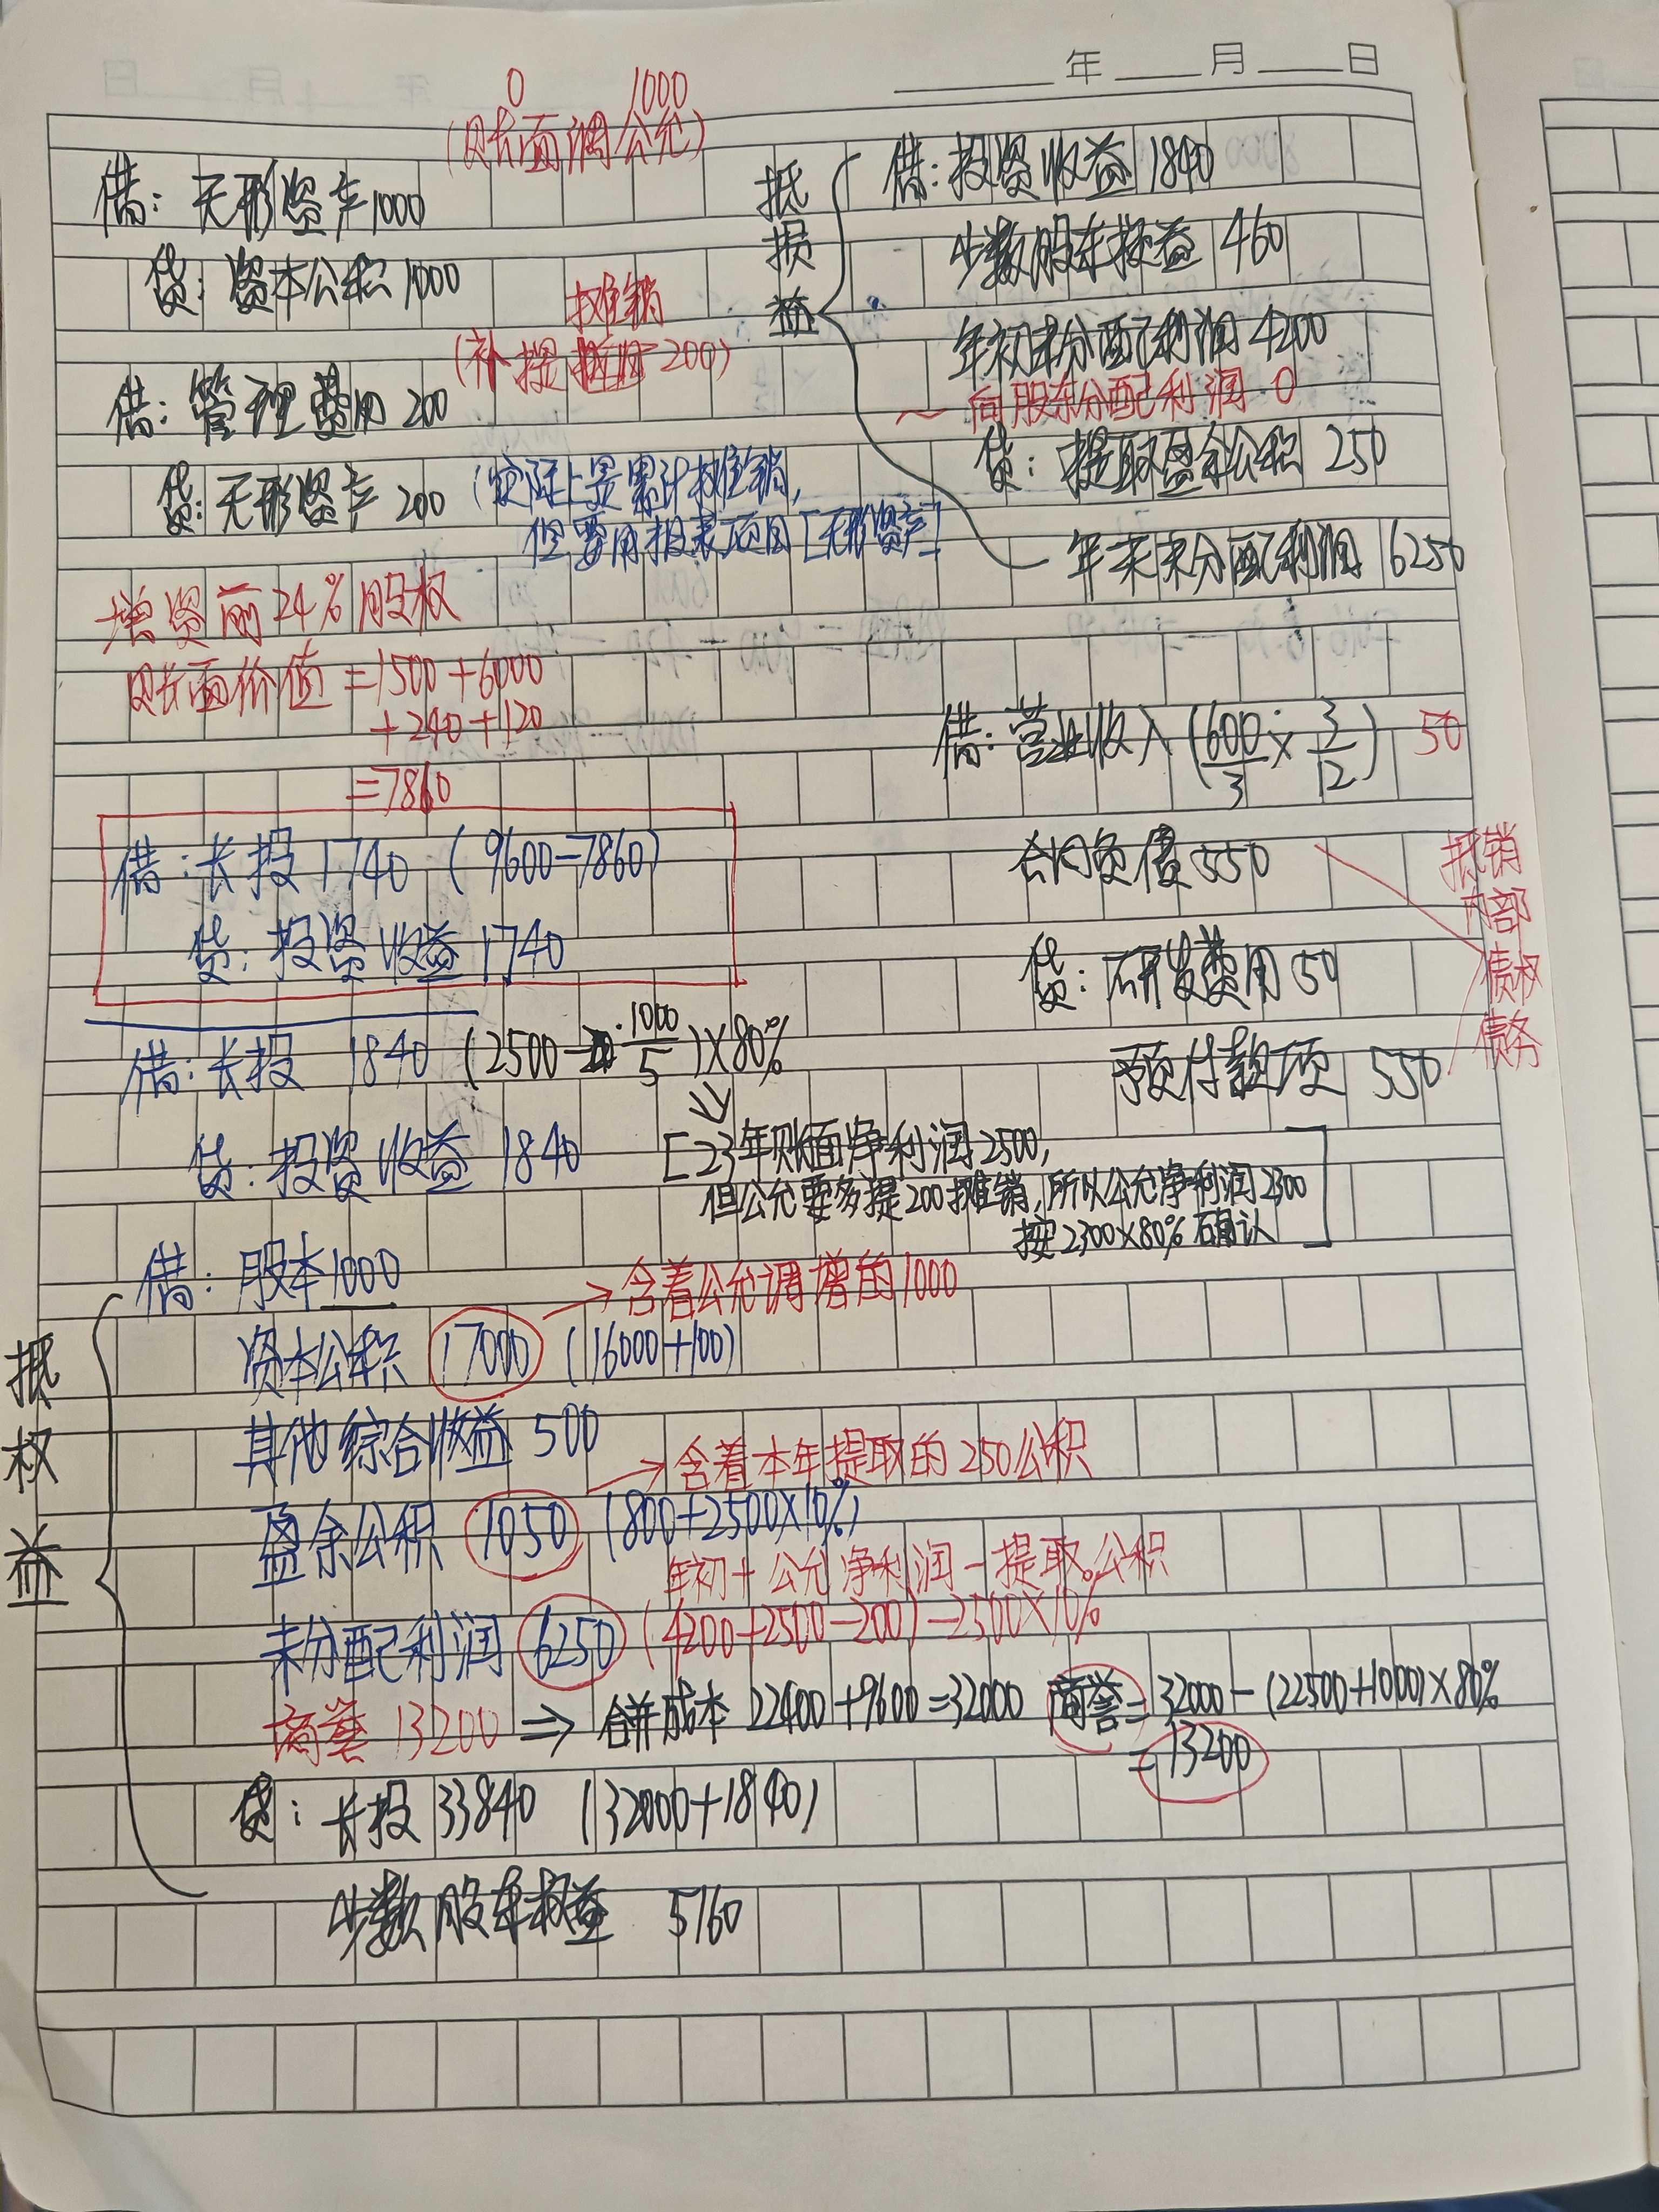 年 月 日
0 1000
(账面调公允)
借: 无形资产1000
贷: 资本公积1000
摊销
(补提 200)
借: 管理费用 200
贷: 无形资产 200
(实际上是累计摊销,
但要用报表项目[无形资产]
增资前24%股权
账面价值=1500+6000
+240+120
=7860
借: 长投1740 (9600-7860)
贷: 投资收益1740
借: 长投 1840 (2500-1000/5)×80%
贷: 投资收益 1840
[23年账面净利润2500,
但公允要多提200摊销,所以公允净利润2300
按2300×80%确认]
抵权益
借: 股本1000
→含着公允调增的1000
资本公积 17000 (16000+100)
其他综合收益 500
→含着本年提取的250公积
盈余公积 1050 (800+2500×10%)
年初+公允净利润-提取公积
未分配利润 6250 (4200+2500-200)-2500×10%
商誉 13200 ⇒ 合并成本 22400+9600=32000 商誉=32000-(22500+1000)×80%
=13200
贷: 长投 33840 (32000+1840)
少数股东权益 5160
抵损益
借: 投资收益 1840
少数股东损益 460
年初未分配利润 4200
~ 向股东分配利润 0
贷: 提取盈余公积 250
年末未分配利润 6250
借: 营业收入 (600/3×3/12) 50
合同负债 550
贷: 研发费用 50
预付款项 550
抵销
内部
债权
债务